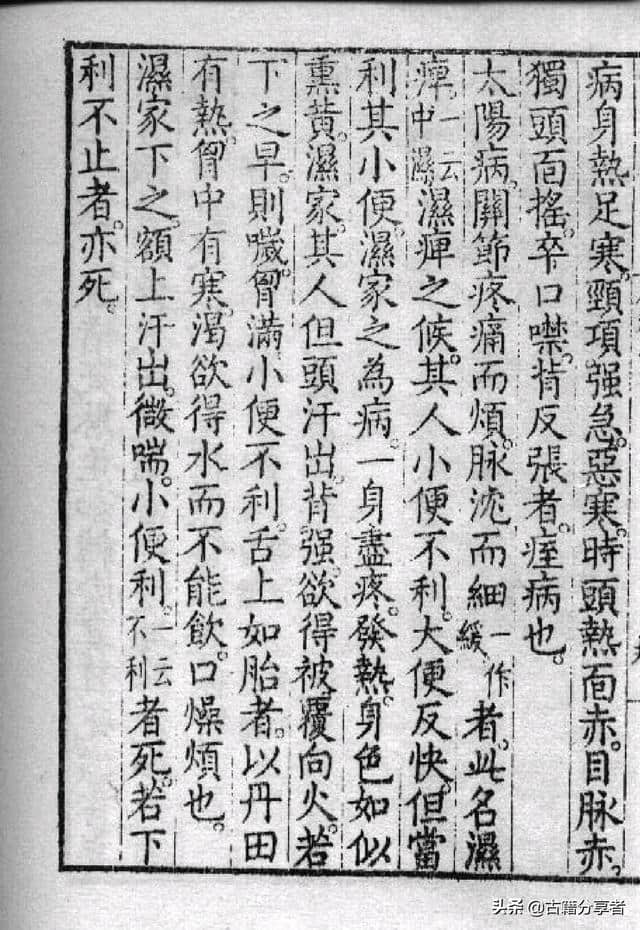 病身熱足寒。頸項强急。惡寒。時頭熱面赤。目脉赤。
獨頭面搖。卒口噤。背反張者。痓病也。
太陽病。關節疼痛而煩。脉沈而細一作緩。者。此名濕
痺。一云中濕。濕痺之候。其人小便不利。大便反快。但當
利其小便。濕家之為病。一身盡疼。發熱。身色如似
熏黃。濕家。其人但頭汗出。背强。欲得被覆向火。若
下之早。則噦。胷滿。小便不利。舌上如胎者。以丹田
有熱。胷中有寒。渴欲得水而不能飲。口燥煩也。
濕家下之。額上汗出。微喘。小便利。一云不利者死。若下
利不止者。亦死。
头条 @古籍分享者